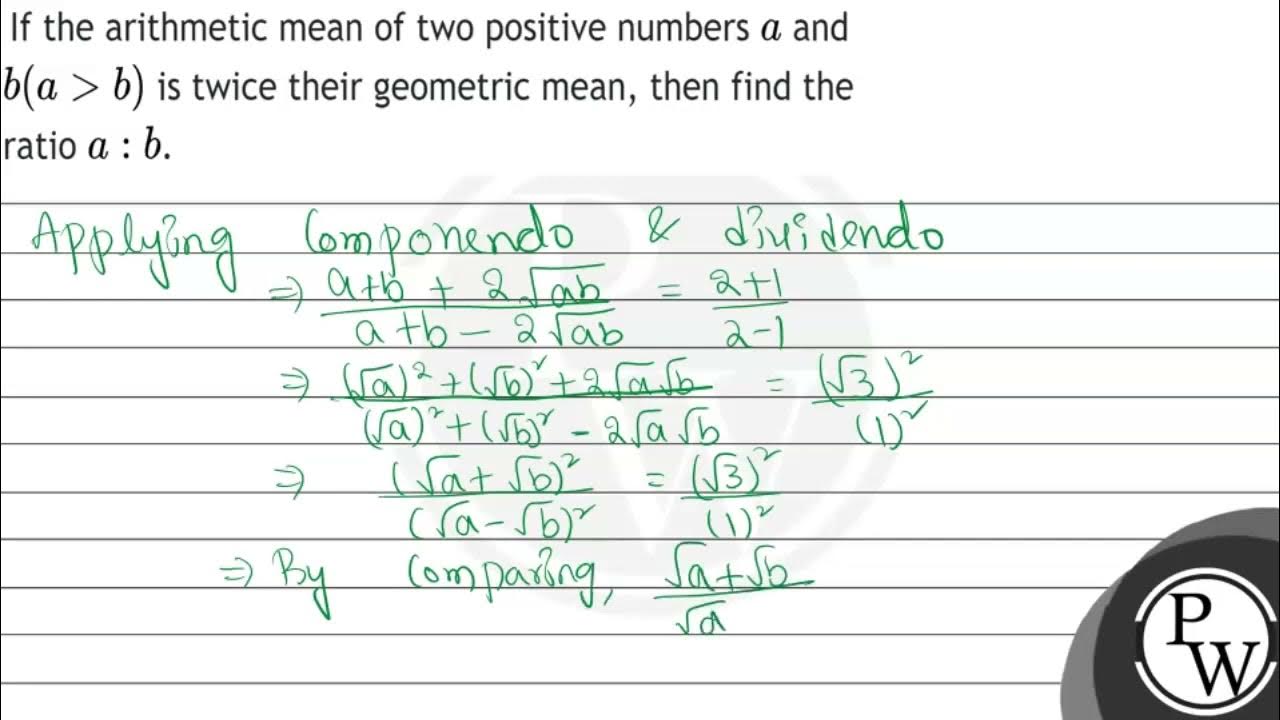 If the arithmetic mean of two positive numbers a and
b(a > b) is twice their geometric mean, then find the
ratio a : b.
Applying Componendo & dividendo
⇒ a+b + 2√ab / a+b − 2√ab = 2+1 / 2-1
⇒ (√a)² + (√b)² + 2√a√b / (√a)² + (√b)² − 2√a√b = (√3)² / (1)²
⇒ (√a + √b)² / (√a − √b)² = (√3)² / (1)²
⇒ By Comparing, √a + √b / √a
P
W